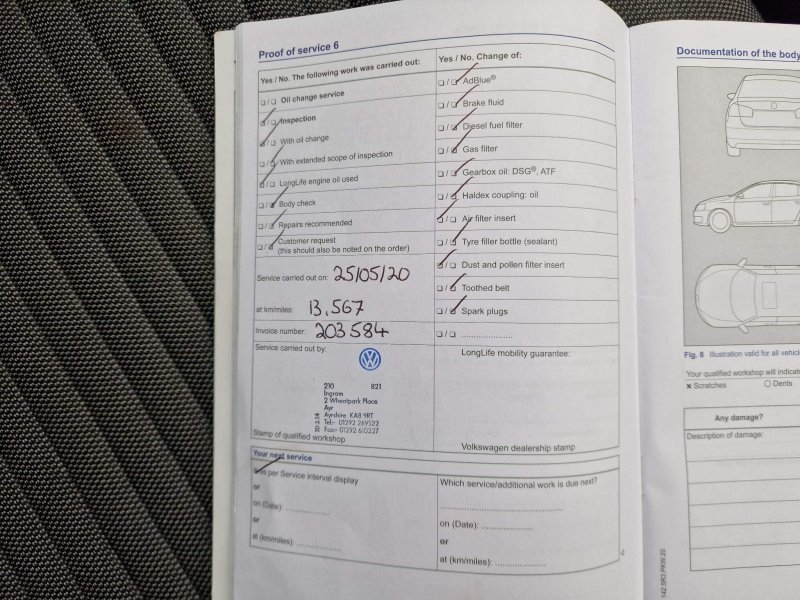 Proof of service 6
Yes / No. The following work was carried out:
❑ / ❑ Oil change service
❑ / ❑ Inspection
❑ / ❑ With oil change
❑ / ❑ With extended scope of inspection
❑ / ❑ LongLife engine oil used
❑ / ❑ Body check
❑ / ❑ Repairs recommended
❑ / ❑ Customer request
(this should also be noted on the order)
Service carried out on: 25/05/20
at km/miles: 13,567
Invoice number: 203584
Service carried out by:
210 821
Ingram
2 Wheatpark Place
Ayr
Ayrshire KA8 9RT
Tel:- 01292 269522
Fax:- 01292 610227
Stamp of qualified workshop
Yes / No. Change of:
❑ / ❑ AdBlue®
❑ / ❑ Brake fluid
❑ / ❑ Diesel fuel filter
❑ / ❑ Gas filter
❑ / ❑ Gearbox oil: DSG®, ATF
❑ / ❑ Haldex coupling: oil
❑ / ❑ Air filter insert
❑ / ❑ Tyre filler bottle (sealant)
❑ / ❑ Dust and pollen filter insert
❑ / ❑ Toothed belt
❑ / ❑ Spark plugs
❑ / ❑ ....................
LongLife mobility guarantee:
Volkswagen dealership stamp
Your next service
as per Service interval display
or
on (Date): ..................
or
at (km/miles): ..................
Which service/additional work is due next?
..................................................
on (Date): ....................
or
at (km/miles): ....................
Documentation of the body
Fig. 8 Illustration valid for all vehicl
Your qualified workshop will indicat
× Scratches ○ Dents
Any damage?
Description of damage:
142.5R3.PKW.20